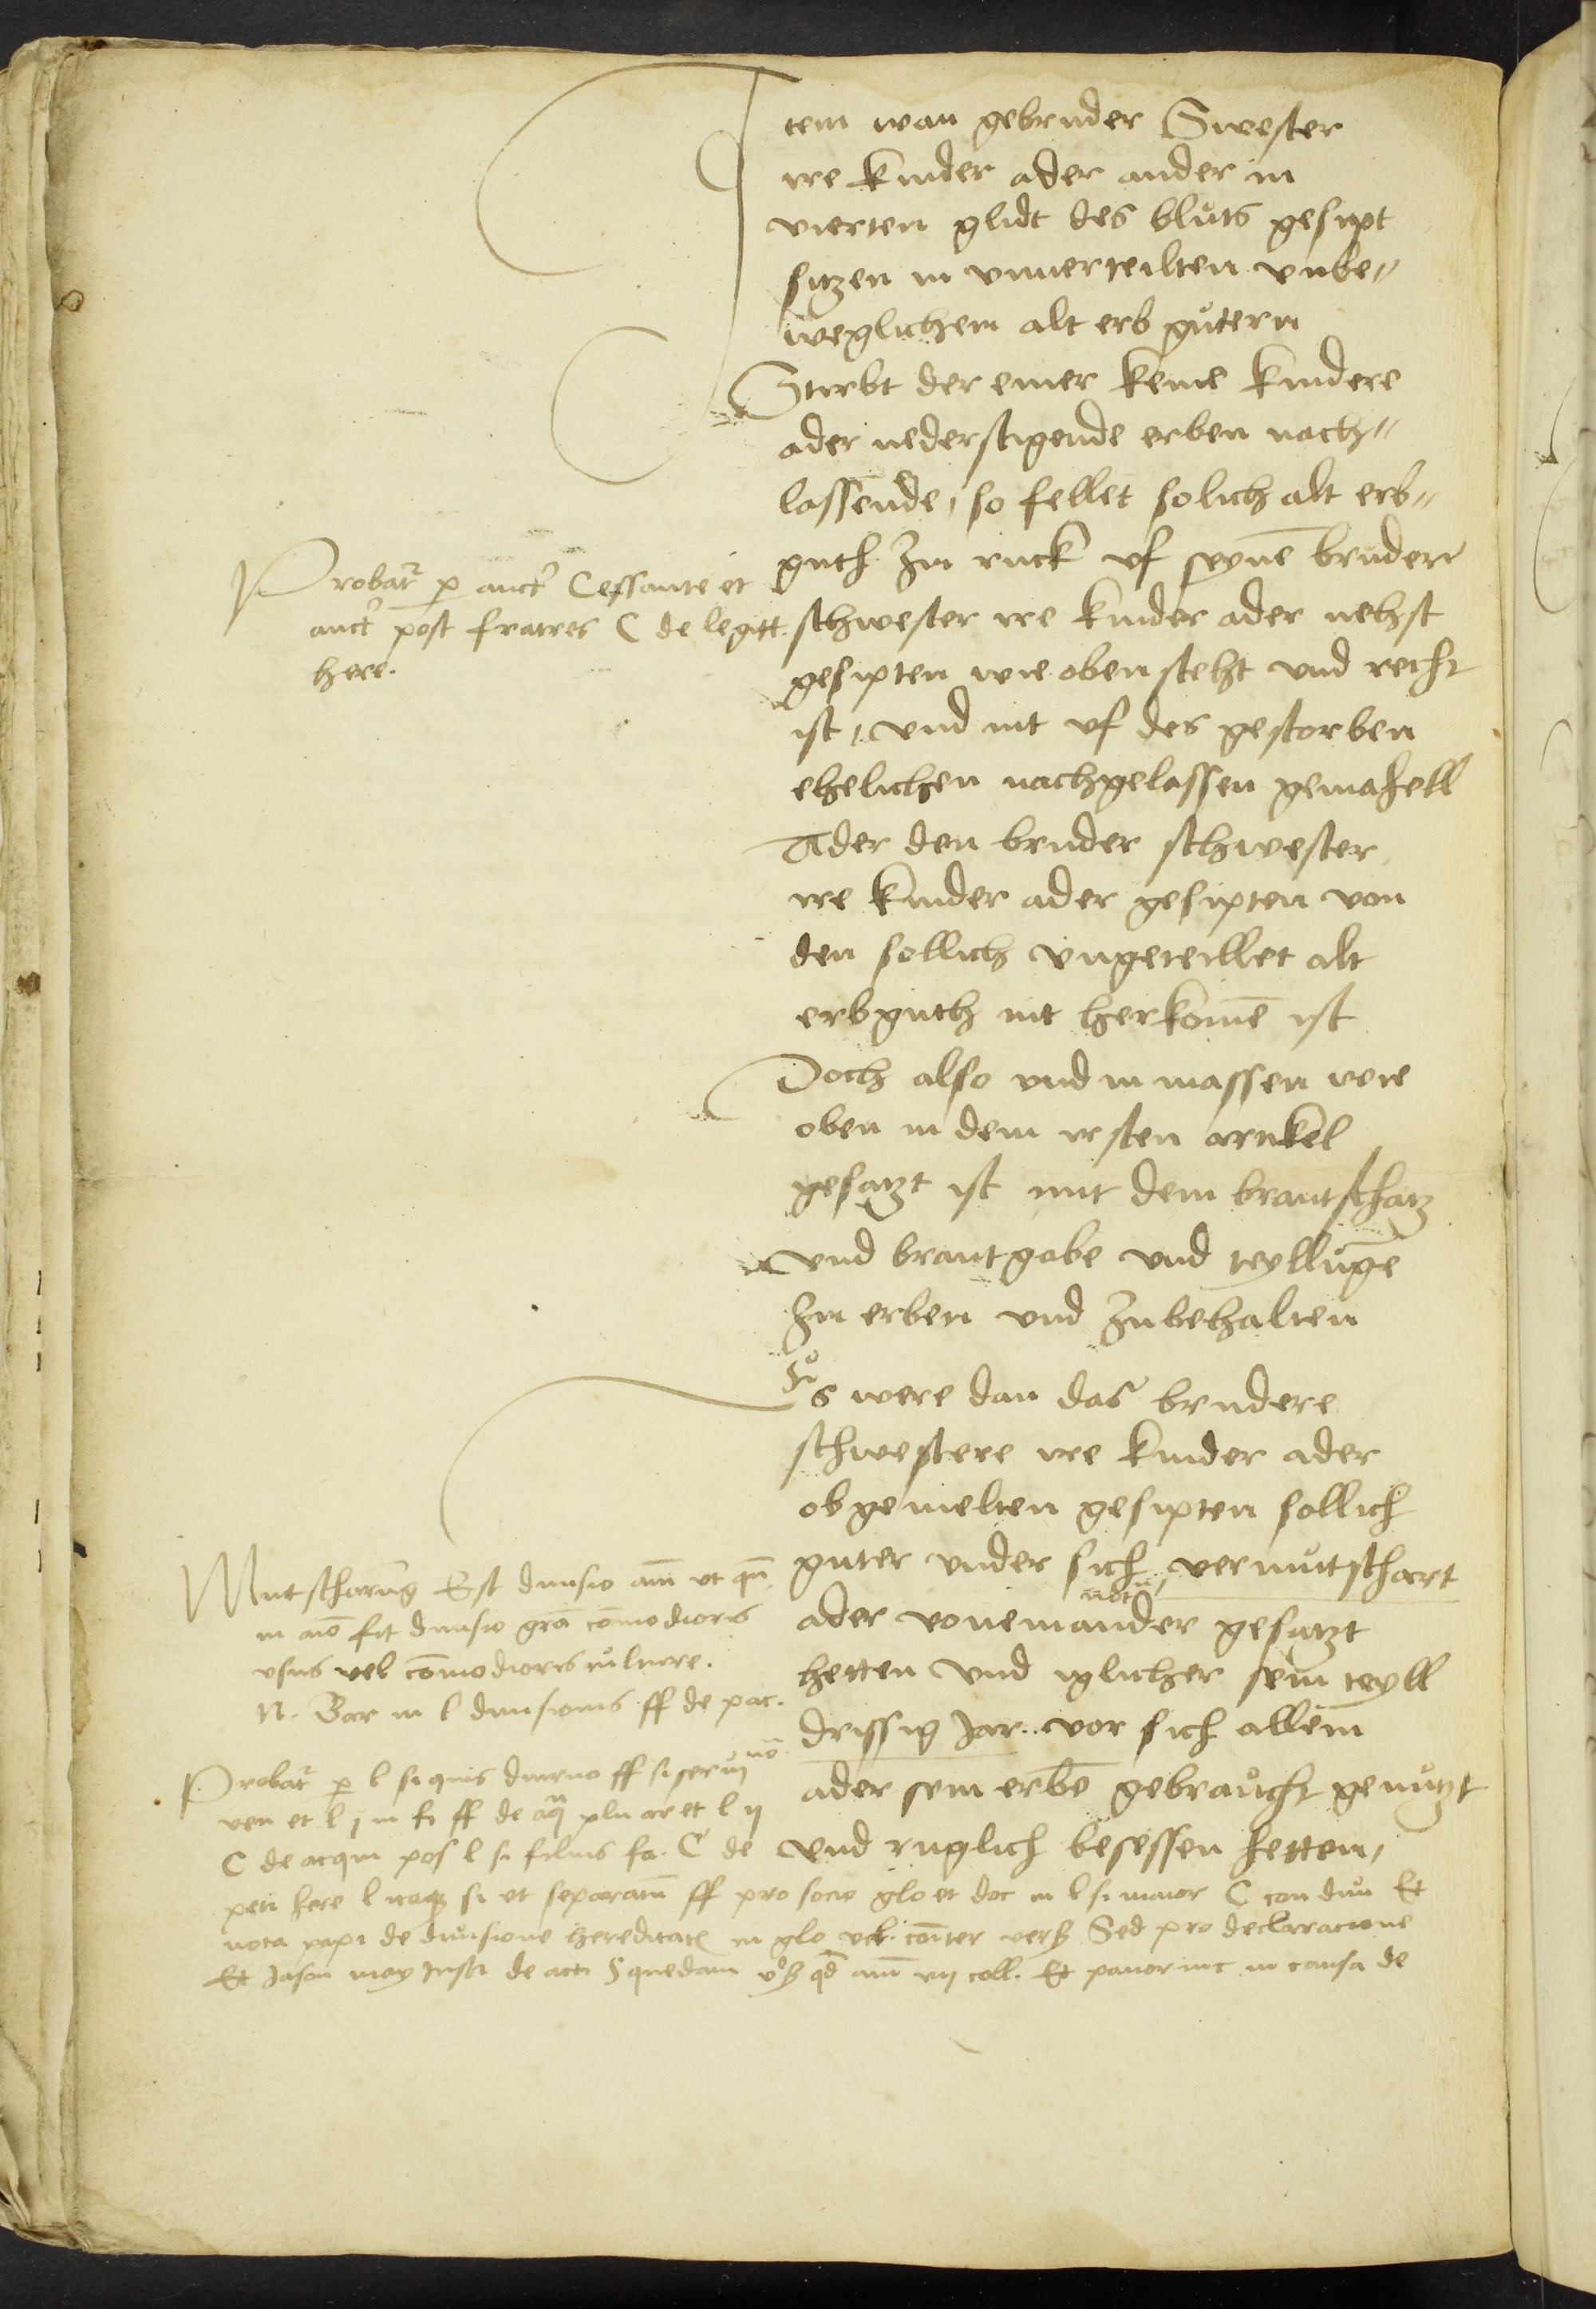 Item wan gebruder Swester
ire kinder ader ander in
vierten glidt des bluts gesipt
sitzen in vnuerteilten vnbe„
weglichem alt erb gůtern
Stirbt der einer keine kindere
ader nederstigende erben nach„
lassende, so fellet solich alt erb„
guth zu ruck vf seynē bruder
schwester ire kinder ader nehst
gesipten wie oben steht vnd recht
ist, vnd nit vf des gestorben
ehelichen nachgelassen gemahell
Ader den bruder schwester
ire kinder ader gesipten von
den sollich vngeteillet alt
erbguth nit herkomē ist
Doch also vnd in massen wie
oben in dem ersten artickel
gesatzt ist mit dem brautschatz
vnd brautgabe vnd teyllūge
zu erben vnd zubehalten
Es were dan das brudere
schwestere ire kinder ader
obgemelten gesipten sollich
guter vnder sich vermůtschart
ader voneinander gesatzt
hetten vnd iglicher sein teyll
drissig Jar vor sich allein
ader sein erbē gebraucht genutzt
vnd ruglich besessen hetten,
Probat̄ ꝑ auct̄ Cessante et
auct̄ post fratres C de legitt.
here.
Mutscharūg Est diuisio
fit diuisio grā cōmodioris
vsus vel cōmodioris culture.
N. Bar in l diuisionis ff de pac.
Probat̄ ꝑ l si quis diuturno ff si seruɉ
ven et l j in fi ff de aq̄ plu ar et l ij
C de acqui pos l si filius fa. C de
peti here l itaq̄ si vt separatī ff pro socio glo et doc in l si maior C com diui Et
nota papi de diuisione hereditatꝭ in glo verb. cōiter vers̄ Sed pro declaracione
Et Jason may Insti de acti § quedam